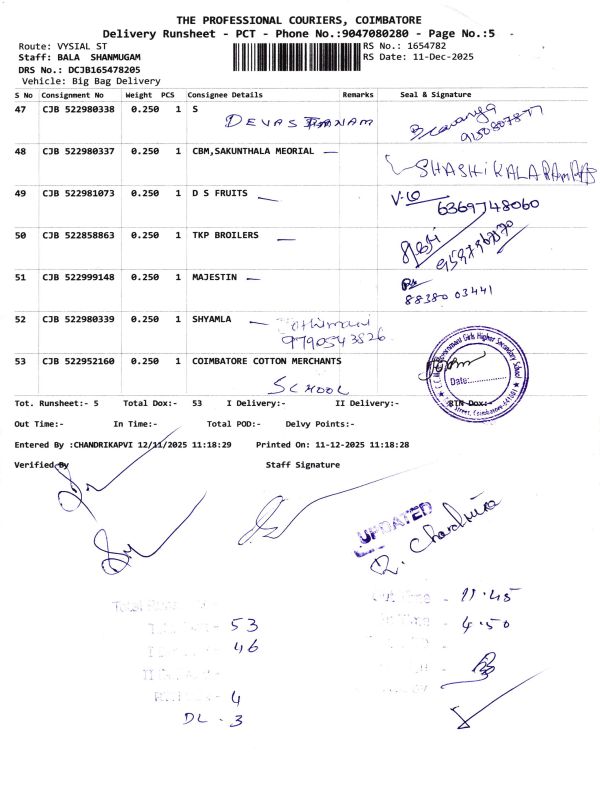 THE PROFESSIONAL COURIERS, COIMBATORE
Delivery Runsheet - PCT - Phone No.:9047080280 - Page No.:5
Route: VYSIAL ST
RS No.: 1654782
Staff: BALA SHANMUGAM
RS Date: 11-Dec-2025
DRS No.: DCJB165478205
Vehicle: Big Bag Delivery
S No Consignment No Weight PCS Consignee Details Remarks Seal & Signature
47 CJB 522980338 0.250 1 S
DEVASTHANAM
9150807877
48 CJB 522980337 0.250 1 CBM,SAKUNTHALA MEORIAL —
SHASHIKALA
49 CJB 522981073 0.250 1 D S FRUITS —
6369748060
50 CJB 522858863 0.250 1 TKP BROILERS —
51 CJB 522999148 0.250 1 MAJESTIN —
88380 03441
52 CJB 522980339 0.250 1 SHYAMLA —
Jothimani
9790543826
53 CJB 522952160 0.250 1 COIMBATORE COTTON MERCHANTS
SCHOOL
Girls Higher Secondary School
Date:
Street, Coimbatore-641001
Tot. Runsheet:- 5 Total Dox:- 53 I Delivery:- II Delivery:- RTN Dox:-
Out Time:- In Time:- Total POD:- Delvy Points:-
Entered By :CHANDRIKAPVI 12/11/2025 11:18:29 Printed On: 11-12-2025 11:18:28
Verified By Staff Signature
UPDATED
R. Chandrika
Out Time - 11.45
In Time - 4.50
53
46
4
DL - 3